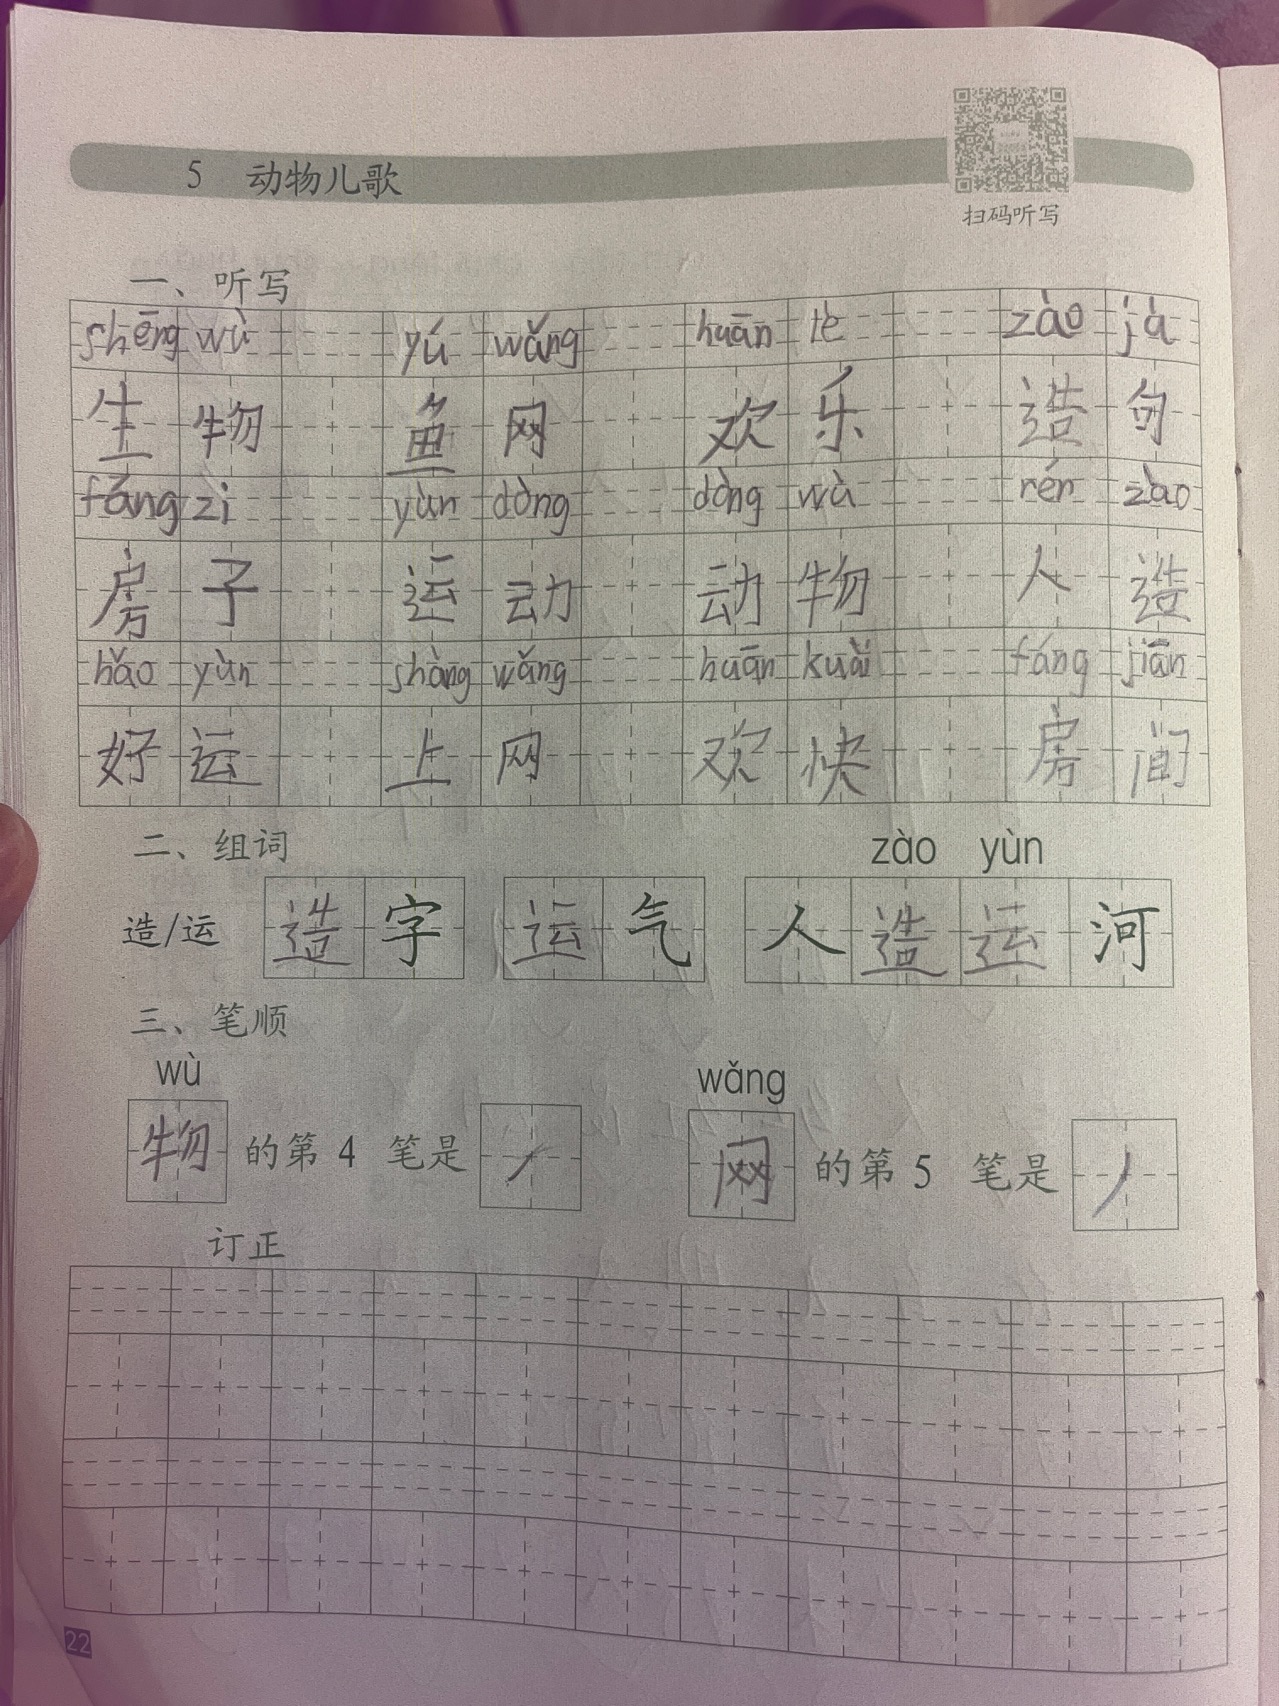 5 动物儿歌
扫码听写
一、听写
shēng wù yú wǎng huān lè zào jù
生物 鱼网 欢乐 造句
fáng zi yùn dòng dòng wù rén zào
房子 运动 动物 人造
hǎo yùn shàng wǎng huān kuài fáng jiān
好运 上网 欢快 房间
二、组词 zào yùn
造/运 造字 运气 人造运河
三、笔顺
wù wǎng
物的第4笔是㇀ 网的第5笔是丿
订正
22